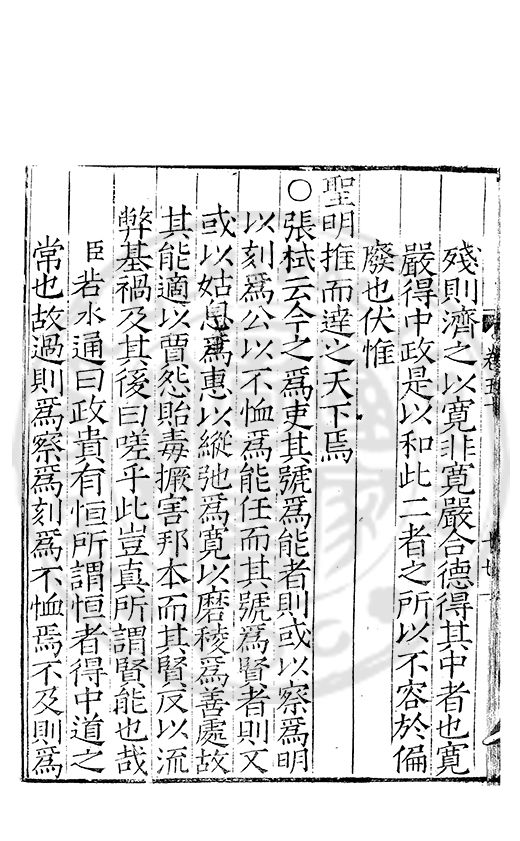 殘則濟之以寛非寛嚴合德得其中者也寛
嚴得中政是以和此二者之所以不容於偏
廢也伏惟
聖明推而達之天下焉
○張栻云今之爲吏其號爲能者則或以察爲明
以刻爲公以不恤爲能任而其號爲賢者則又
或以姑息爲惠以縱弛爲寛以磨稜爲善處故
其能適以賈怨貽毒撅害邦本而其賢反以流
弊基禍及其後曰嗟乎此豈真所謂賢能也哉
臣若水通曰政貴有恒所謂恒者得中道之
常也故過則爲察爲刻爲不恤焉不及則爲
卷五